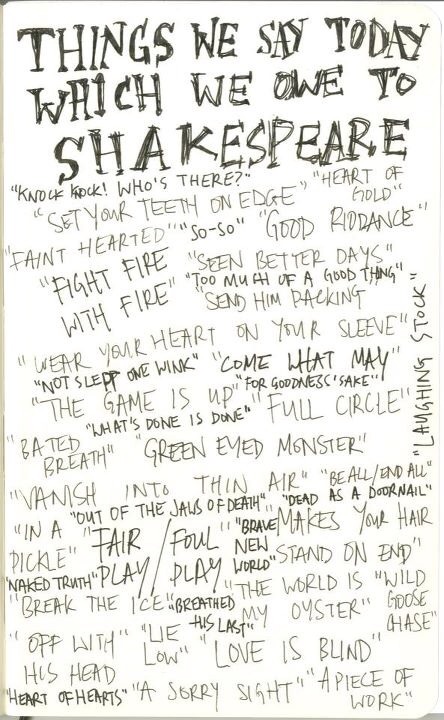 THINGS WE SAY TODAY
WHICH WE OWE TO
SHAKESPEARE
"KNOCK KNOCK! WHO'S THERE?"
"HEART OF GOLD"
"SET YOUR TEETH ON EDGE"
"FAINT HEARTED"
"SO-SO"
"GOOD RIDDANCE"
"FIGHT FIRE
WITH FIRE"
"SEEN BETTER DAYS"
"TOO MUCH OF A GOOD THING"
"SEND HIM PACKING
"WEAR YOUR HEART ON YOUR SLEEVE"
"LAUGHING STOCK"
"NOT SLEPT ONE WINK"
"COME WHAT MAY"
"THE GAME IS UP"
"FOR GOODNESS' SAKE"
"WHAT'S DONE IS DONE"
"FULL CIRCLE"
"BATED
BREATH"
"GREEN EYED MONSTER"
"VANISH INTO THIN AIR"
"BE ALL/END ALL"
"OUT OF THE JAWS OF DEATH"
"DEAD AS A DOORNAIL"
"IN A
PICKLE"
"FAIR / FOUL
PLAY / PLAY"
"BRAVE
NEW
WORLD"
MAKES YOUR HAIR
STAND ON END"
"NAKED TRUTH"
"BREAK THE ICE"
"BREATHED
HIS LAST"
"THE WORLD IS
MY OYSTER"
"WILD
GOOSE
CHASE"
"OFF WITH
HIS HEAD
"LIE
LOW"
"LOVE IS BLIND"
"HEART OF HEARTS"
"A SORRY SIGHT"
"A PIECE OF
WORK"